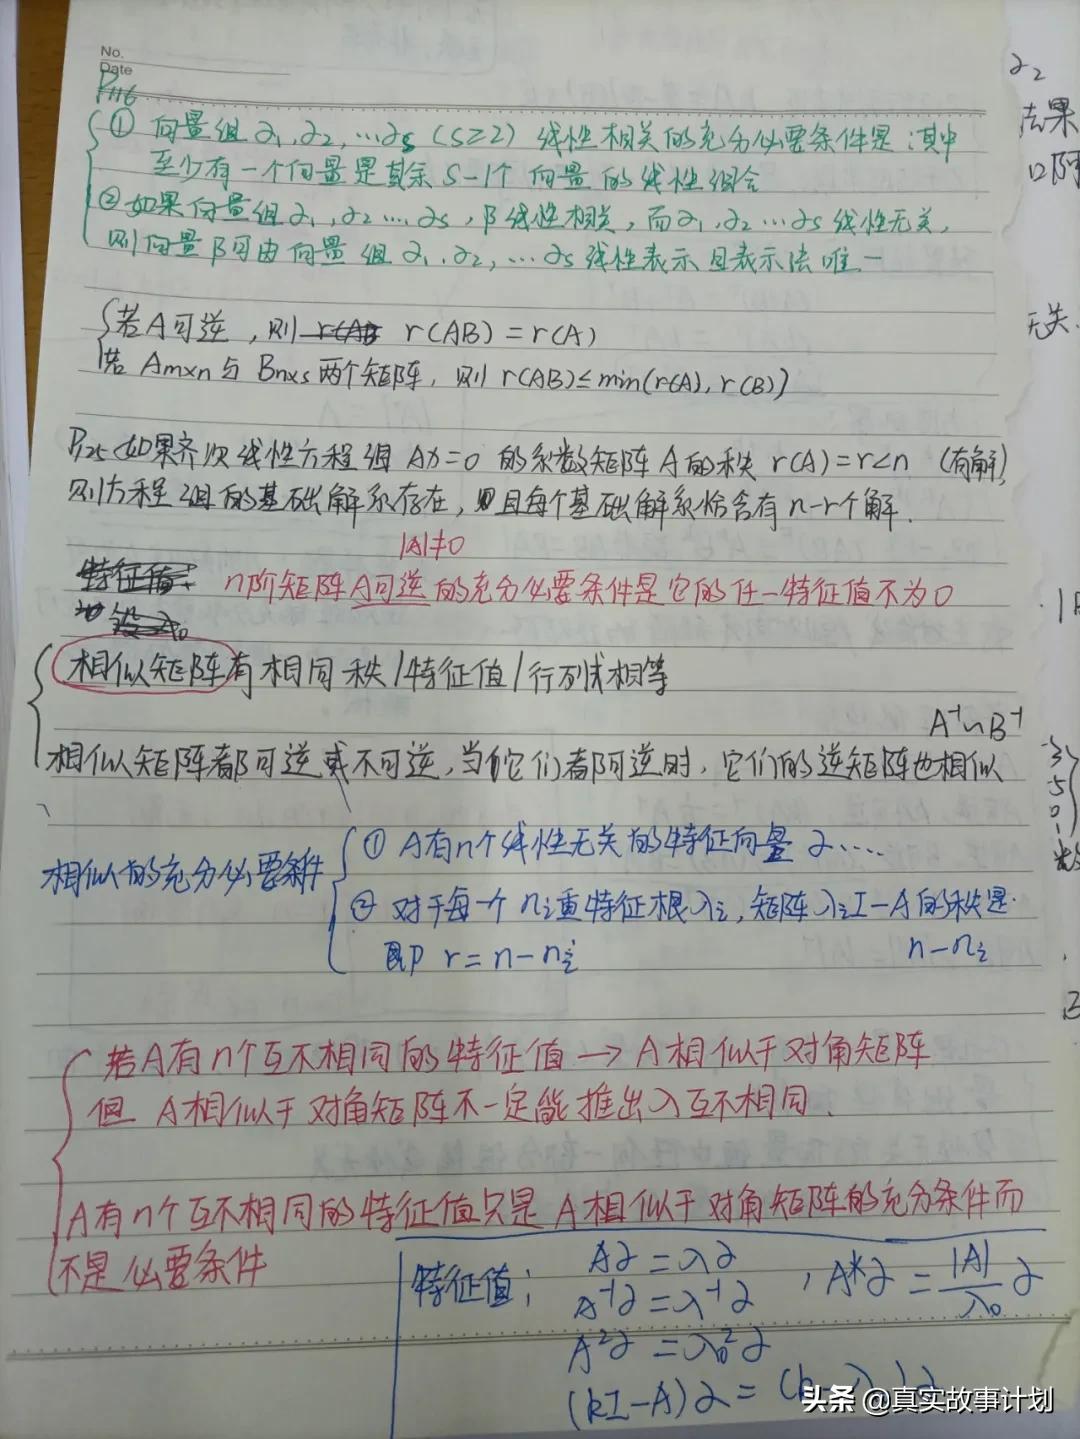 No.
Date
P116
① 向量组α1,α2,…αs (s≥2) 线性相关的充分必要条件是:其中
至少有一个向量是其余S-1个向量的线性组合
②如果向量组α1,α2…αs,β线性相关,而α1,α2…αs线性无关,
则向量β可由向量组α1,α2,…αs线性表示且表示法唯一
若A可逆,则 r(AB r(AB)=r(A)
若 Am×n与Bn×s两个矩阵,则 r(AB)≤min(r(A),r(B))
P125如果齐次线性方程组 Ax=0 的系数矩阵A的秩 r(A)=r<n (有解)
则方程组的基础解系存在,且每个基础解系恰含有n-r个解.
|A|≠0
特征值: n阶矩阵A可逆的充分必要条件是它的任一特征值不为0
设λ0
相似矩阵有相同秩/特征值/行列式相等
A⁻¹∽B⁻¹
相似矩阵都可逆或不可逆,当它们都可逆时,它们的逆矩阵也相似
相似的充分必要条件
① A有n个线性无关的特征向量α….
② 对于每一个ni重特征根λi,矩阵λiI-A的秩是
即 r=n-ni n-ni
若A有n个互不相同的特征值→A相似于对角矩阵
但 A相似于对角矩阵不一定能推出λ互不相同.
A有n个互不相同的特征值只是A相似于对角矩阵的充分条件而
不是必要条件
特征值: Aα=λα , A*α=|A|/λ0 α
A⁻¹α=λ⁻¹α
A²α=λ0²α
(kI-A)α=(k-λ)α
α2
法果
无关.
头条 @真实故事计划